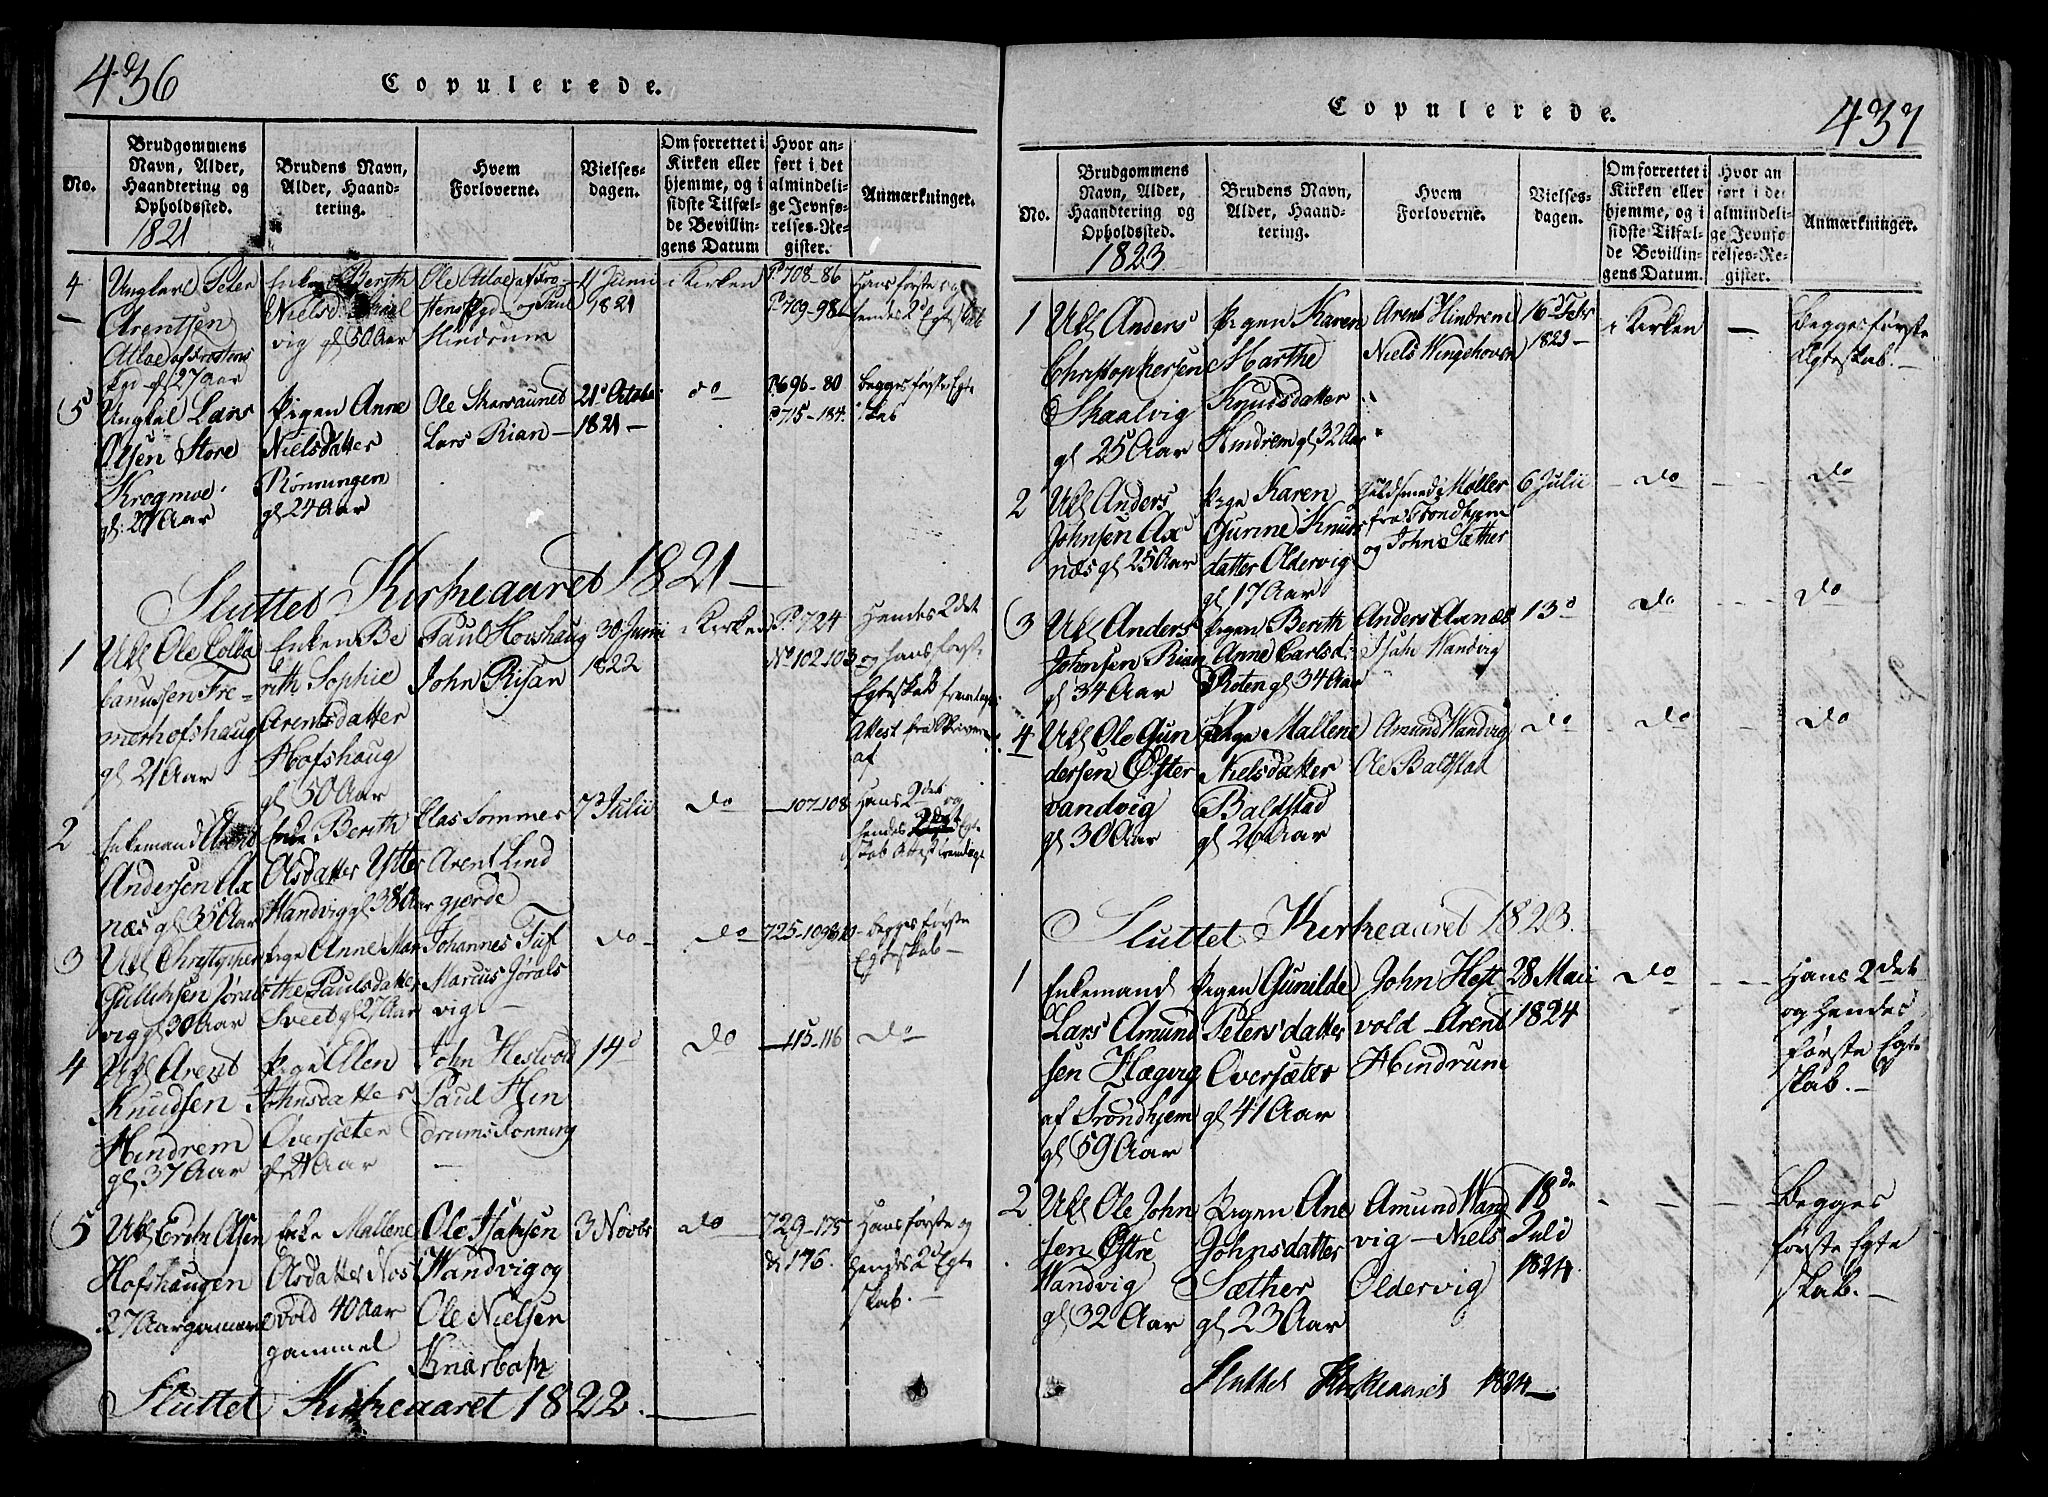 436
Copulerede.
No.
Brudgommens
Navn, Alder,
Haandtering og
Opholdssted.
1821
Brudens Navn,
Alder, Haand-
tering.
Hvem
Forloverne.
Vielses-
dagen.
Om forrettet i
Kirken eller
hjemme, og i
sidste Tilfæl-
de Bevillin-
gens Datum
Hvor an-
ført i det
almindeli-
ge Jevnfø-
relses-Re-
gister.
Anmærkninger.
4
Ungkarl Peter
Arentsen
Atloe af Frostens
gl 27 Aar
Enke Berith
Nielsd
vig gl 50 Aar
Ole Atloe af Fro-
og Paul
Hindrum
Junii
1821
i Kirken
P. 708-86
P. 709-98
Hans første og
hendes 2d Egteskab
5
Ungkal Lars
Olsen Store
Krogmoe
gl: 21 Aar
Pigen Anne
Nielsdatter
Rønningen
gl 24 Aar
Ole Skarsaunet
Lars Rian
21 Octobr
1821
do
P. 696-80
P. 715-184
Begges første Egte
skab
Sluttet Kirkeaaret 1821
1
Ukl Ole Colba
banussen Tre-
merhofshaug
gl 21 Aar
Enken Be
rith Sophie
Arentsdatter
Hofshaug
gl 50 Aar
Paul Hovshaug
John Risan
30 Junii
1822
i Kirken
P. 724
No 102 103
Hendes 2det
og hans første
Egteskab fremlagt
Attest fra Skriveren
af
2
Enkemand
Andersen Ax
næs gl 35 Aar
Enke Berith
Olsdatter Ytter
Wandvig gl 38 Aar
Clas Sommer
Arent Lind
gjerde
7 Julii
Do
107-108
Hans 2det og
hendes 2det Egte
skab Attest fremlagt
3
Ukl Christopher
Gullichsen Jørals
vig gl 30 Aar
Pige Anne Mar
the Paulsdatter
Sveet gl 27 Aar
Johannes Tuf
Marcus Jørals
vig
Do
Do
725-109&110
Begges første
Egteskab
4
Ukl Arent
Knudsen
Hindrem
gl 37 Aar
Pige Ellen
Johnsdatter
Oversæter
gl 21 Aar
John Hestvold
Paul Hin
drumsrønning
14d
Do
115-116
Do
5
Ukl Erich Olsen
Hofshaugen
27 Aar gammel
Enke Mallene
Olsdatter Nos
vold 40 Aar
gammel
Ole Isaksen
Wandvig og
Ole Nielsen
3 Novbr
do
729-175
& 176.
Hans første og
hendes 2d Egte
skab.
Sluttet Kirkeaaret 1822.
437
Copulerede.
No.
Brudgommens
Navn, Alder,
Haandtering og
Opholdssted.
1823
Brudens Navn,
Alder, Haand-
tering.
Hvem
Forloverne.
Vielses-
dagen.
Om forrettet i
Kirken eller
hjemme, og i
sidste Tilfæl-
de Bevillin-
gens Datum.
Hvor an
ført i det
almindeli-
ge Jevnfø-
relses-Re-
gister.
Anmærkninger.
1
Ukl Anders
Christophersen
Skaalvig
gl 25 Aar
Pigen Karen
Marthe
Knudsdatter
Hindrem gl 32 Aar
Arent Hindrem
Niels Wingehovn
16d Febr
1823
i Kirken
Begges første
Egteskab.
2
Ukl Anders
Johnsen Ax
næs gl 25 Aar
Pige Karen
Gurine Knuds
datter Oldervig
gl 17 Aar
Guldsmed Møller
fra Trondhjem
og John Sæther
6 Julii
Do
Do
3
Ukl Anders
Johnsen Rian
gl 34 Aar
Pigen Berith
Anne Carlsd:
Roten gl 34 Aar
Anders Axnæs
Isak Wandvig
13d
Do
Do
4
Ukl Ole Gun
dersen Øster
vandvig
gl 30 Aar
Pige Mallene
Nielsdatter
Baldstad
gl 26 Aar
Amund Wandvig
Ole Baldstad
Do
Do
Do
Sluttet Kirkeaaret 1823.
1
Enkemand
Lars Amund
sen Hægvig
af Trondhjem
gl 59 Aar
Pigen Gunilde
Petersdatter
Oversæter
gl 41 Aar
John Hest
vold Arent
Hindrum
28 Maii
1824
Do
Hans 2det
og Hendes
første Egte
skab.
2
Ukl Ole John
sen Østre
Wandvig
gl 32 Aar
Pigen Ane
Johnsdatter
Sæther
gl 23 Aar
Amund Wand
vig - Niels
Oldervig
18de
Juli
1824.
Begges
første Egte
skab.
Sluttet Kirkeaaret 1824